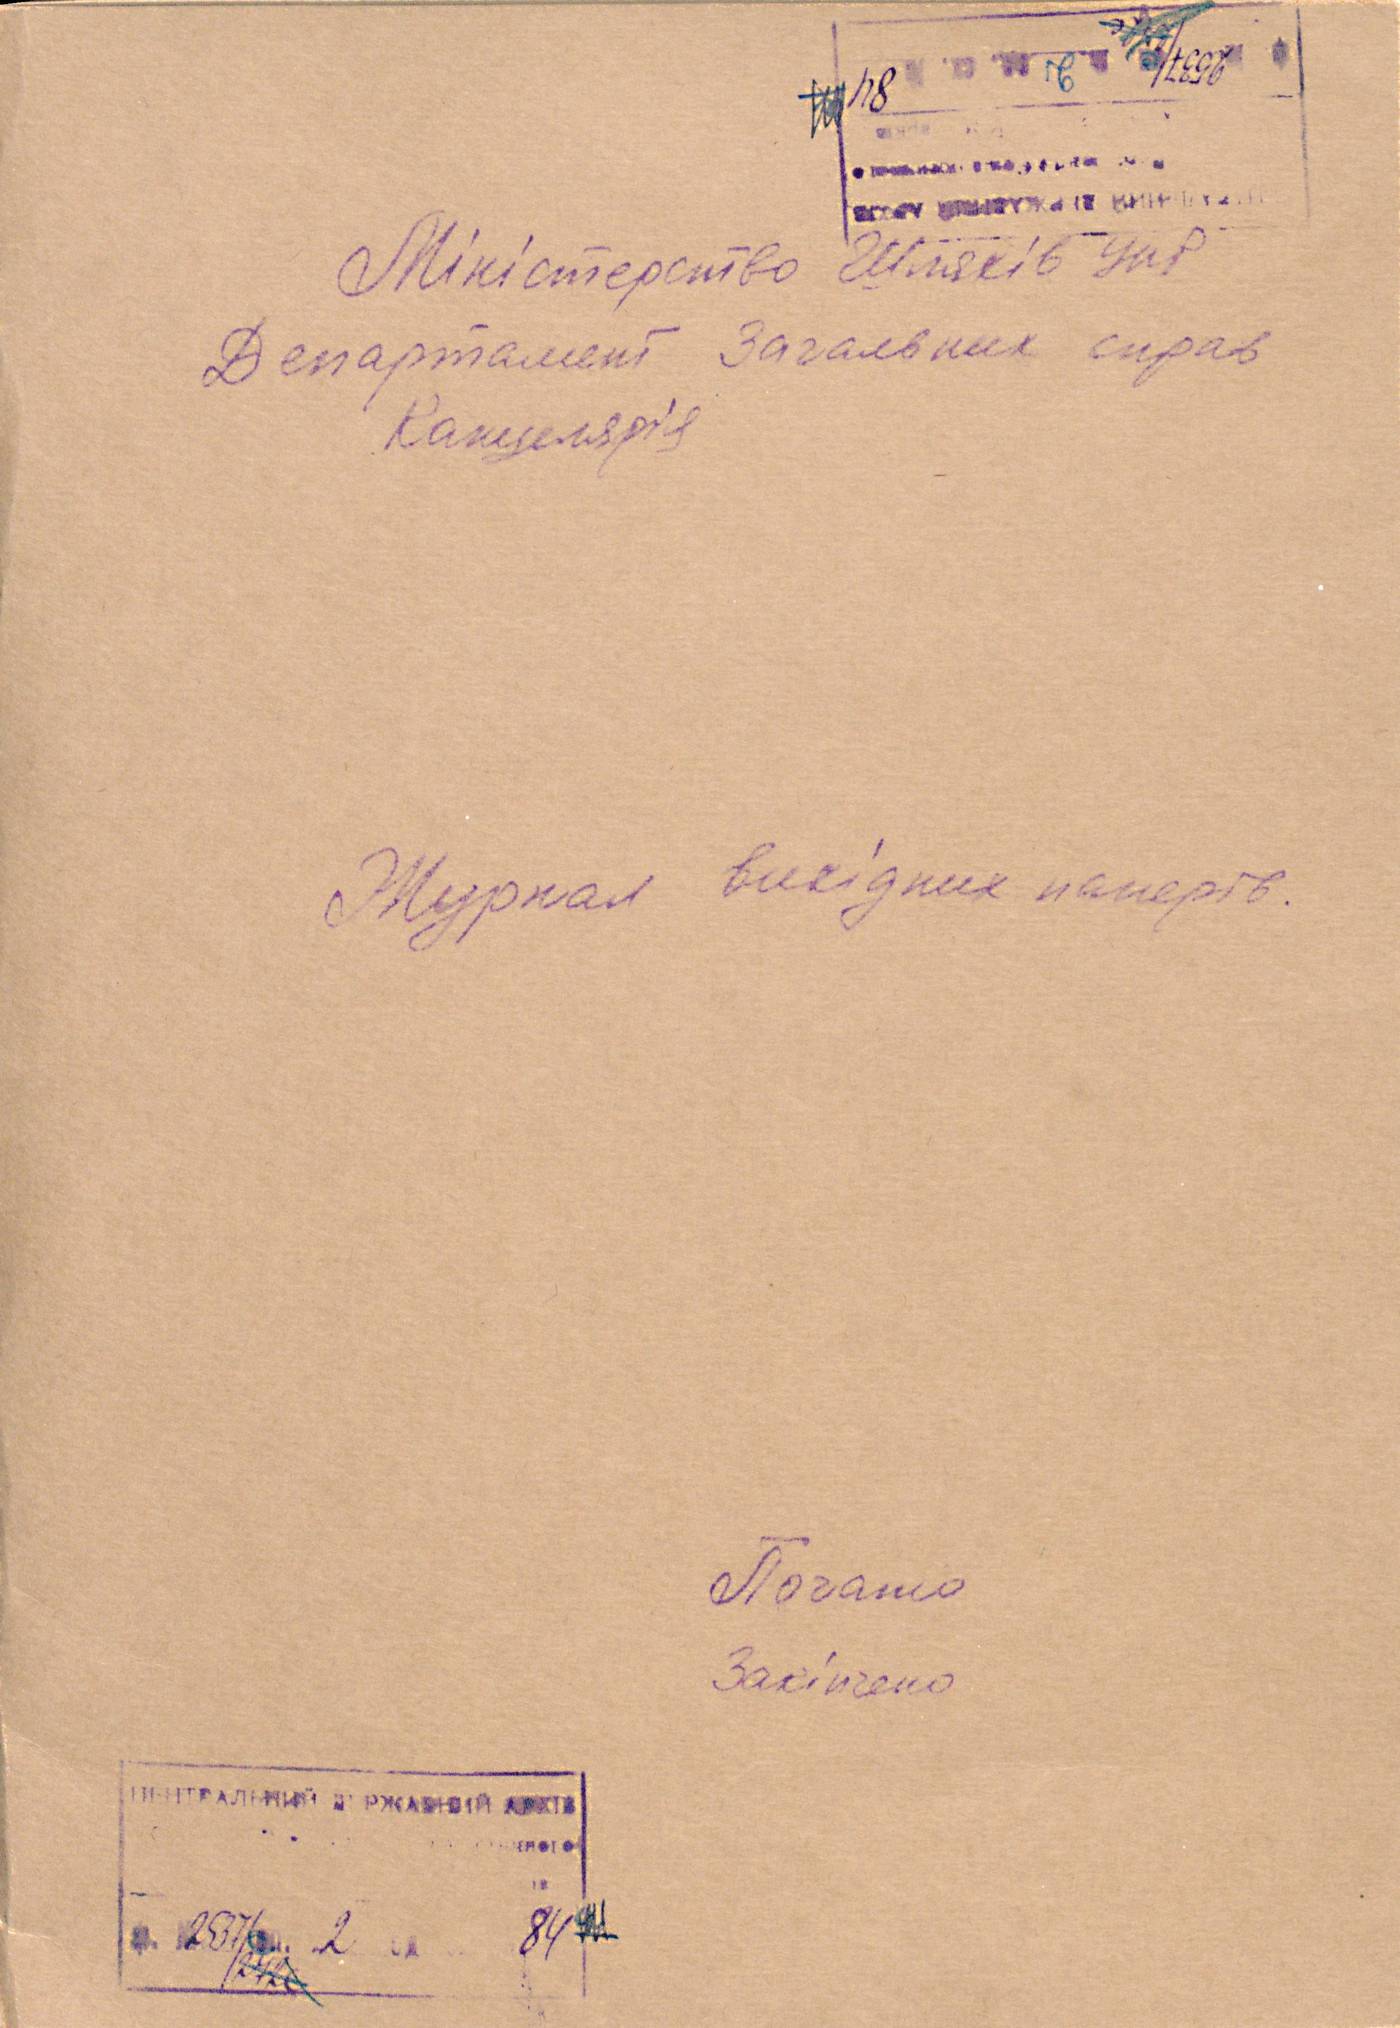 84 2 2537
Міністерство Шляхів УНР
Департамент Загальних справ
Канцелярія
Журнал вихідних паперів.
Почато
Закінчено
ЦЕНТРАЛЬНИЙ ДЕРЖАВНИЙ АРХІВ
ф. № 2537 оп. 2 од 84